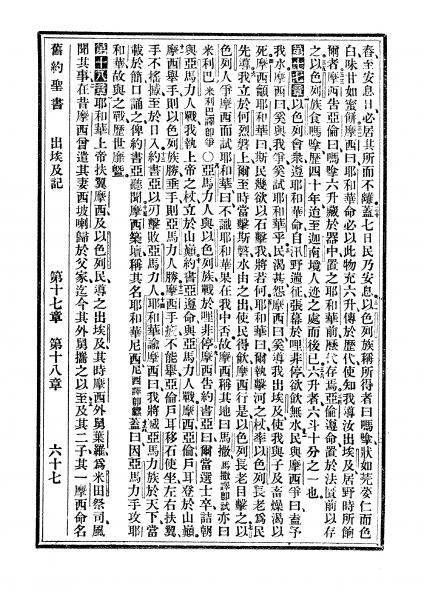 舂至安息日必居其所而不離蓋七日民乃安息以色列族稱所得者曰嗎嗱狀如芫荽仁而色
白味甘如蜜餅摩西曰耶和華命必以此物充六升傳於歷代使知我導汝出埃及居野時所餉
爾者摩西告亞倫曰嗎嗱六升藏於器中置之耶和華前歷代存焉亞倫遵命置於法匱前以存
之以色列族食嗎嗱歷四十年迨至迦南境人迹之處而後已六升者六斗十分之一也
第十七章以色列會衆遵耶和華命自汛野遄征張幕於哩非停欲飲無水民與摩西爭曰盍予
我水摩西曰奚與我爭奚試耶和華乎民渴甚怨摩西曰奚導我出埃及使我與子及畜燥渴以
死摩西籲耶和華曰斯民幾欲以石擊我將若何耶和華曰爾執擊河之杖率以色列長老爲民
先導我立於何烈磐上爾至時當擊斯磐水由之出使民得飲摩西行是以色列長老目擊之以
色列人爭摩西而試耶和華曰不識耶和華果在我中否故摩西稱其地曰馬撒馬撒譯卽試亦曰
米利巴米利巴譯卽爭○亞馬力人與以色列族戰於哩非停摩西告約書亞曰爾當選士卒詰朝
與亞馬力人戰我執上帝之杖立於山巔約書亞遵命與亞馬力人戰摩西亞倫戶耳登於山巔
摩西舉手則以色列族勝垂手則亞馬力人勝摩西手疲不能舉亞倫戶耳移石使坐左右扶翼
手不搖撼至於日入約書亞以刃擊敗亞馬力人耶和華諭摩西曰我將滅亞馬力族於天下當
載於簡口誦之俾約書亞聽聞摩西築壇稱其名耶和華尼西尼西譯卽纛蓋曰因亞馬力手攻耶
和華故與之戰歷世靡曁
第十八章耶和華上帝扶翼摩西及以色列民導之出埃及其時摩西外舅葉羅爲米田祭司風
聞其事在昔摩西曾遣其妻西坡喇歸於父家迄今其外舅攜之以至及其二子其一摩西命名
舊約聖書 出埃及記 第十七章 第十八章 六十七